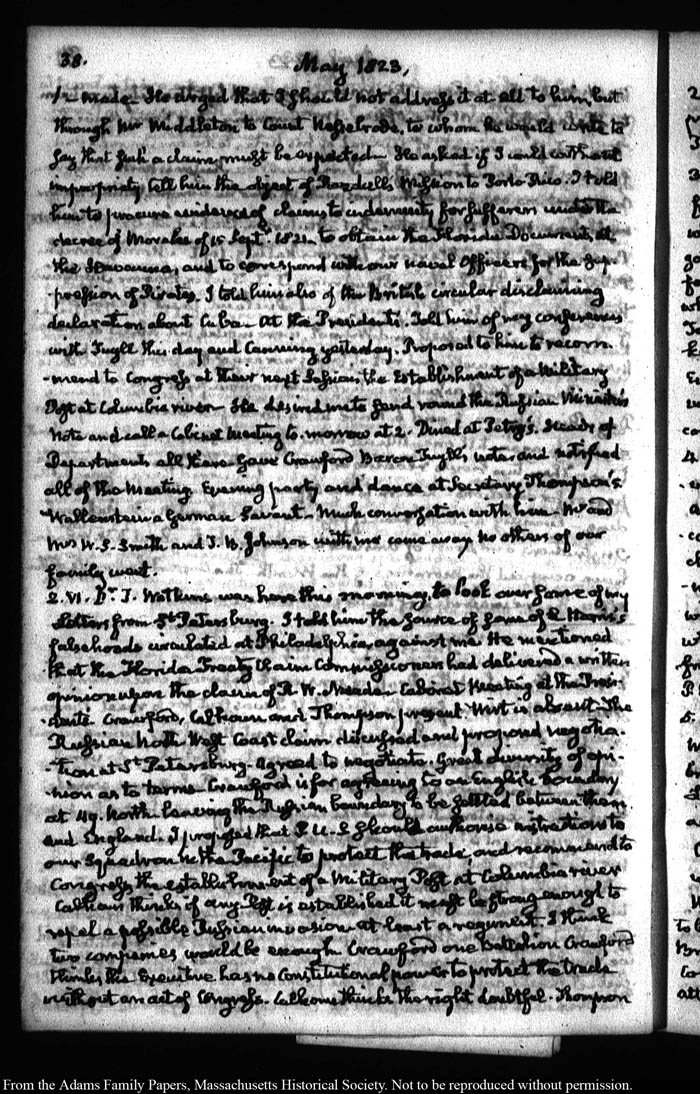 38.
May 1823.
made. He urged that I should not address it at all to him, but
through Mr Middleton to Count Nesselrode, to whom he would write to
say that such a claim must be expected. He asked if I would without
impropriety tell him the object of Randall's Mission to Porto Rico. I told
him to procure evidence of claims to indemnity for sufferers under the
decree of Morales of 15 Septr. 1821. to obtain the Florida Documents at
the Havanna, and to correspond with our naval Officers for the sup-
pression of Pirates. I told him also of the British circular disclaiming
declaration about Cuba. At the Presidents. Told him of my conferences
with Tuyll this day and Canning yesterday. Proposed to him to recom-
-mend to Congress at their next Session, the Establishment of a Military
Post at Columbia river. He desired me to send round the Russian Minister's
Note and call a Cabinet Meeting to-morrow at 2. Dined at Petry's. Heads of
Departments all there. Gave Crawford Baron Tuyll's note and notified
all of the Meeting. Evening party and dance at Secretary Thompson's
Wallenstein a German Savant. Much conversation with him. Mr and
Mrs W. S. Smith and J. B. Johnson with me came away no others of our
family went.
2. VI. Dr. T. Watkins was here this morning, to look over some of my
Letters from St Petersburg. I told him the source of some of L. Harris's
falsehoods circulated at Philadelphia against me. He mentioned
that the Florida Treaty Claim Commissioners had delivered a written
opinion upon the claim of R. W. Meade. Cabinet Meeting at the Presi-
-dents. Crawford, Calhoun and Thompson present. Wirt is absent. The
Russian North West Coast claim discussed and proposed negotia-
-tion at St Petersburg. Agreed to negotiate. Great diversity of opi-
-nion as to terms. Crawford is for agreeing to an English boundary
at 49. North leaving the Russian boundary to be settled between them
and England. I proposed that P. U. S. should authorise instructions to
our Squadron in the Pacific to protect the trade, and recommend to
Congress the establishment of a Military Post at Columbia river
Calhoun thinks if any Post is established it must be strong enough to
repel a possible Russian invasion at least a regiment. I think
two companies would be enough. Crawford one Battalion. Crawford
thinks the Executive has no Constitutional power to protect the trade
without an act of Congress. Calhoun thinks the right doubtful. Thompson
From the Adams Family Papers, Massachusetts Historical Society. Not to be reproduced without permission.